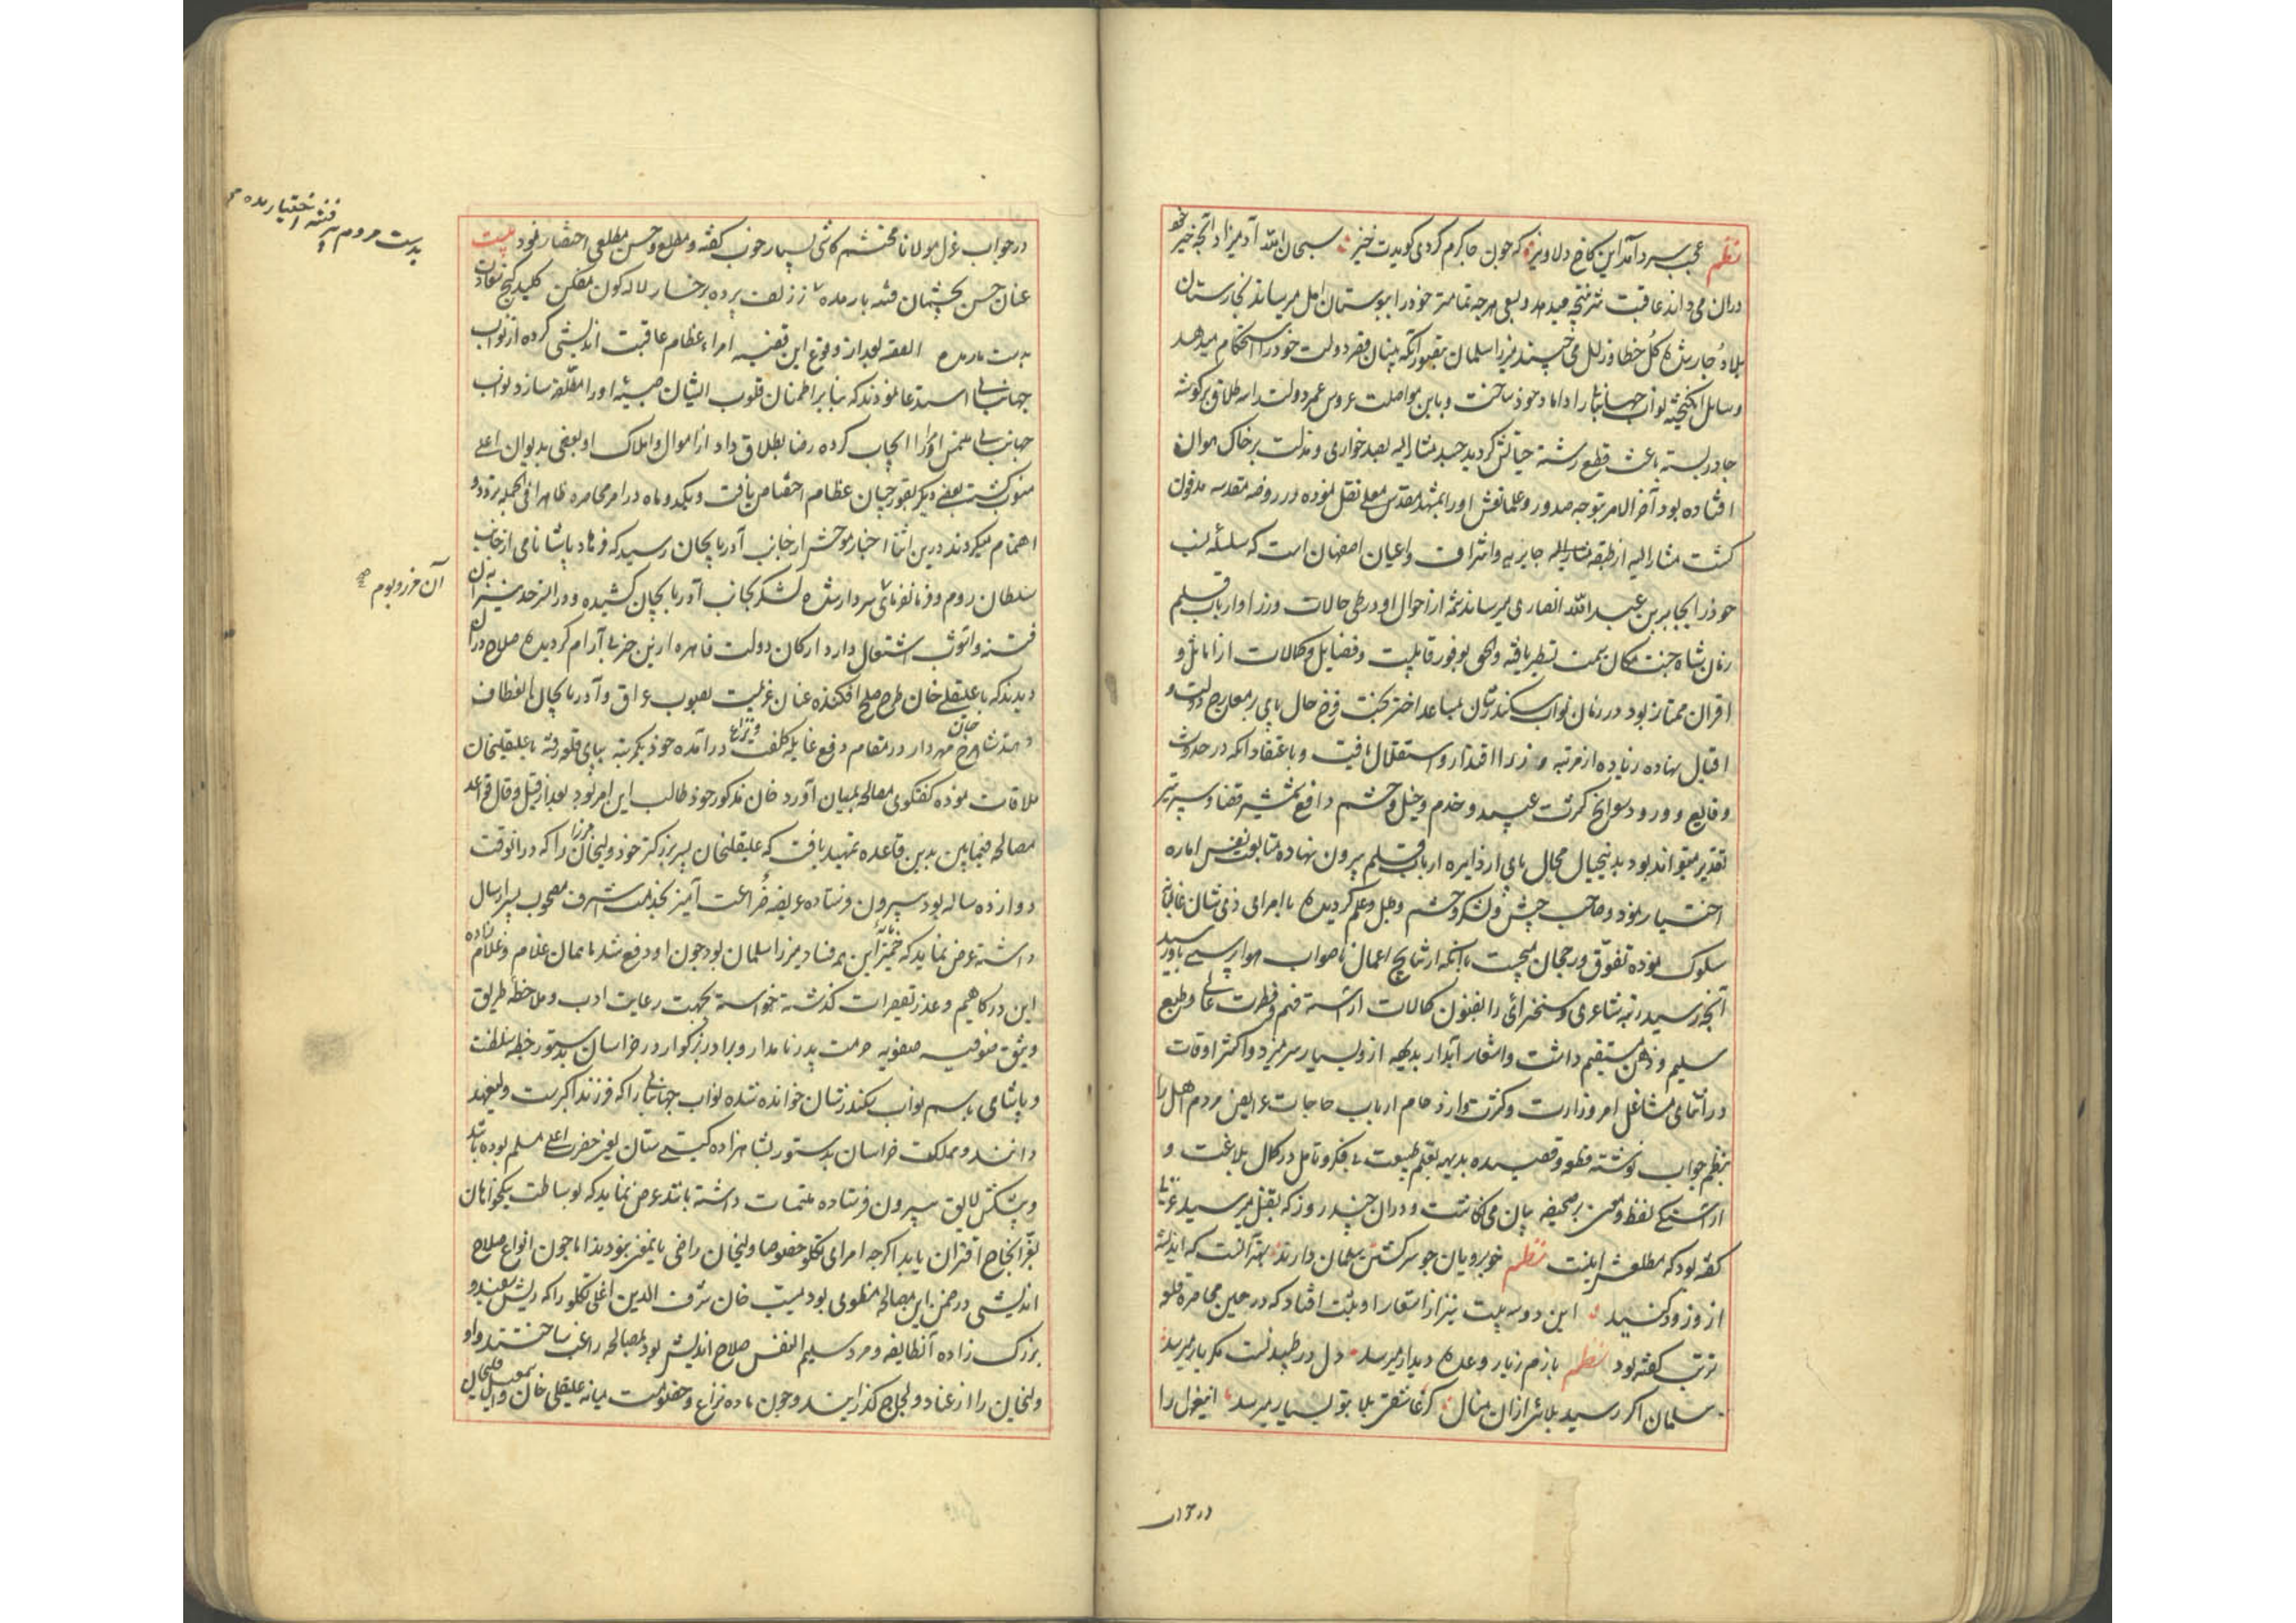 نظم عجب سرد آمد این کاخ دلاویز که چون جا گرم کردی گویدت خیز سبحان الله آدمیزاد آنچه خیر خود
دران می داند عاقبت شر نتیجه میدهد و بسعی هر چه تمامتر خود را ببوستان امل میرساند بخارستان
بلا دچار شده گل خطا و زلل می چیند میرزا سلمان بتصور آنکه بنیان قصر دولت خود را استحکام میدهد
وسایل انگیخته نواب جهانبانی را داماد خود ساخت و باین مواصلت عروس عمر و دولت را سه طلاق بر گوشه
چادر بسته باعث قطع رشته حیاتش گردید جسد مشار الیه بصد خواری و مذلت بر خاک هوان
افتاده بود آخر الامر بتوجه صدور و علما نعش او را بمشهد مقدس معلی نقل نموده در روضه مقدسه مدفون
گشت مشار الیه از طبقه جابریه و اشراف و اعیان اصفهان است که سلسله نسب
خود را بجابر بن عبد الله انصاری میرسانند شمه از احوال او در طی حالات وزرا و ارباب قلم
زمان شاه جنت مکان سمت تسطیر یافته والحق بوفور قابلیت و فضایل و کمالات از اماثل و
اقران ممتاز بود در زمان نواب سکندر شان بمساعدا ختر بخت فرخ حال پای بر معارج دولت و
اقبال نهاده زیاده از مرتبه وزرا اقتدار و استقلال یافت و باعتقاد آنکه در حدوث
وقایع و ورود سوانح کثرت عبید و خدم و خیل و حشم دافع شمشیر قضا و سپر تیر
تقدیر میتواند بود بدینخیال محال پای از دایره ارباب قلم بیرون نهاده متابعت نفس اماره
اختیار نمود و صاحب جیش و لشکر و حشم و طبل و علم گردیده با امرای ذی شان غالبانه
سلوک نموده تفوق و رجحان میجست تا آنکه از نتایج اعمال ناصواب هوا پرستی باو رسید
آنچه رسید رتبه شاعری و سخنرائی را بفنون کمالات آراسته فهم و فطرت عالی و طبع
سلیم و ذهن مستقیم داشت و اشعار آبدار بدیهه ازو بسیار سر میزد و اکثر اوقات
در اثنای مشاغل امر وزارت و کثرت وارد حام ارباب حاجات عرایض مردم اهل را
بنظم جواب نوشته قطعه و قصیده بدیهه بقلم طبیعت بی فکر و تامل در کمال بلاغت و
آراستگی لفظ و معنی بر صحیفه بیان می نگاشت و در آن چند روز که بقتل میرسید غزلی
گفته بود که مطلعش اینست نظم خوبرویان چو سر کشتن سلمان دارند بهتر آنست که اندیشه
از و زود کنید این دو سه بیت نیز از اشعار او ثبت افتاد که در حین محاصره قلعه
تربت گفته بود نظم بازم ز یار وعده دیدار میرسد دل در طپیدنست مگر یار میرسد
سلمان اگر رسید بلائی ازان منال گر عاشقی بلا بتو بسیار میرسد این غزل را
در جواب
در جواب غزل مولانا محتشم کاشی بسیار خوب گفته و مطلع و حسن مطلعی احضار نمود بیت
عنان حسن بچشمان فتنه بار مده ز زلف پرده برخسار لاله گون مفکن کلید گنج سعادت
بدست مار مده القصه بعد از وقوع این قضیه امراء عظام عاقبت اندیشی کرده از نواب
جهانبانی استدعا نمودند که بنا بر اطمینان قلوب ایشان صبیه او را مطلقه سازد نواب
جهانبانی ملتمس امرا را ایجاب کرده رضا بطلاق داد از اموال و املاک او بعضی بدیوان اعلی
منسوب گشت بعضی دیگر بقورچیان عظام اختصاص یافت و یکدو ماه در امر محاصره ظاهرا فی الجمله تردد و
اهتمام میکردند درین اثنا اخبار موحش از جانب آذربایجان رسید که فرهاد پاشا نامی از جانب
سلطان روم و فرمانفرمائی سردار شده لشکر بجانب آذربایجان کشیده و در ان حدود نیران
فتنه و آشوب اشتعال دارد ارکان دولت قاهره ازین خبر بی آرام گردیده صلاح دران
دیدند که با علیقلی خان طرح صلح افکنده عنان عزیمت بصوب عراق و آذربایجان انعطاف
دهند شاهرخ خان مهردار در مقام دفع غایله کلفت و نزاع در آمده خود یکمرتبه بپای قلعه رفته با علیقلیخان
ملاقات نموده گفتگوی مصالحه بمیان آورد خان مذکور خود طالب این امر بود بعد از قیل و قال قواعد
مصالحه فیمابین بدین قاعده تمهید یافت که علیقلیخان پسر بزرگتر خود ولیخان میرزا را که در آنوقت
دوازده ساله بود بیرون فرستاده عریضه ضراعت آمیز بخدمت اشرف مصحوب پسر ارسال
داشته عرض نماید که خمیر مایه این همه فساد میرزا سلمان بود چون او دفع شد ما همان غلام و غلام زاده
این درگاهیم و عذر تقصیرات گذشته خواسته بجهت رعایت ادب و ملاحظه طریق
وثیق صوفیه صفویه حرمت پدر نامدار و برادر بزرگوار در خراسان بدستور خطبه سلطنت
و پاشای باسم نواب سکندر شان خوانده شده نواب جهانبانی را که فرزند اکبرست ولیعهد
دانند و مملکت خراسان بدستور بشاهزاده گیتی ستان یعنی حضرت اعلی مسلم بوده باشد
و پیشکش لایق بیرون فرستاده ملتمسات داشته باشد عرض نماید که بوساطت نیکخواهان
بعز انجاح اقتران یابد اگر چه امرای تکلو خصوصا ولیخان راضی باینمعنی نبودند اما چون انواع صلاح
اندیشی در ضمن این مصالحه منظوی بود مسیب خان شرف الدین اغلی تکلو را که ریش سفید و
بزرگ زاده آنطایفه و مرد سلیم النفس صلاح اندیش بود بمصالحه راغب ساختند و او
ولیخان را از عناد و لجاج گذرانید و چون ماده نزاع و خصومت میانه علیقلی خان و اسمعیل قلیخان
بدست مردم پر فتنه اختیار مده صح
آن مرز و بوم صح